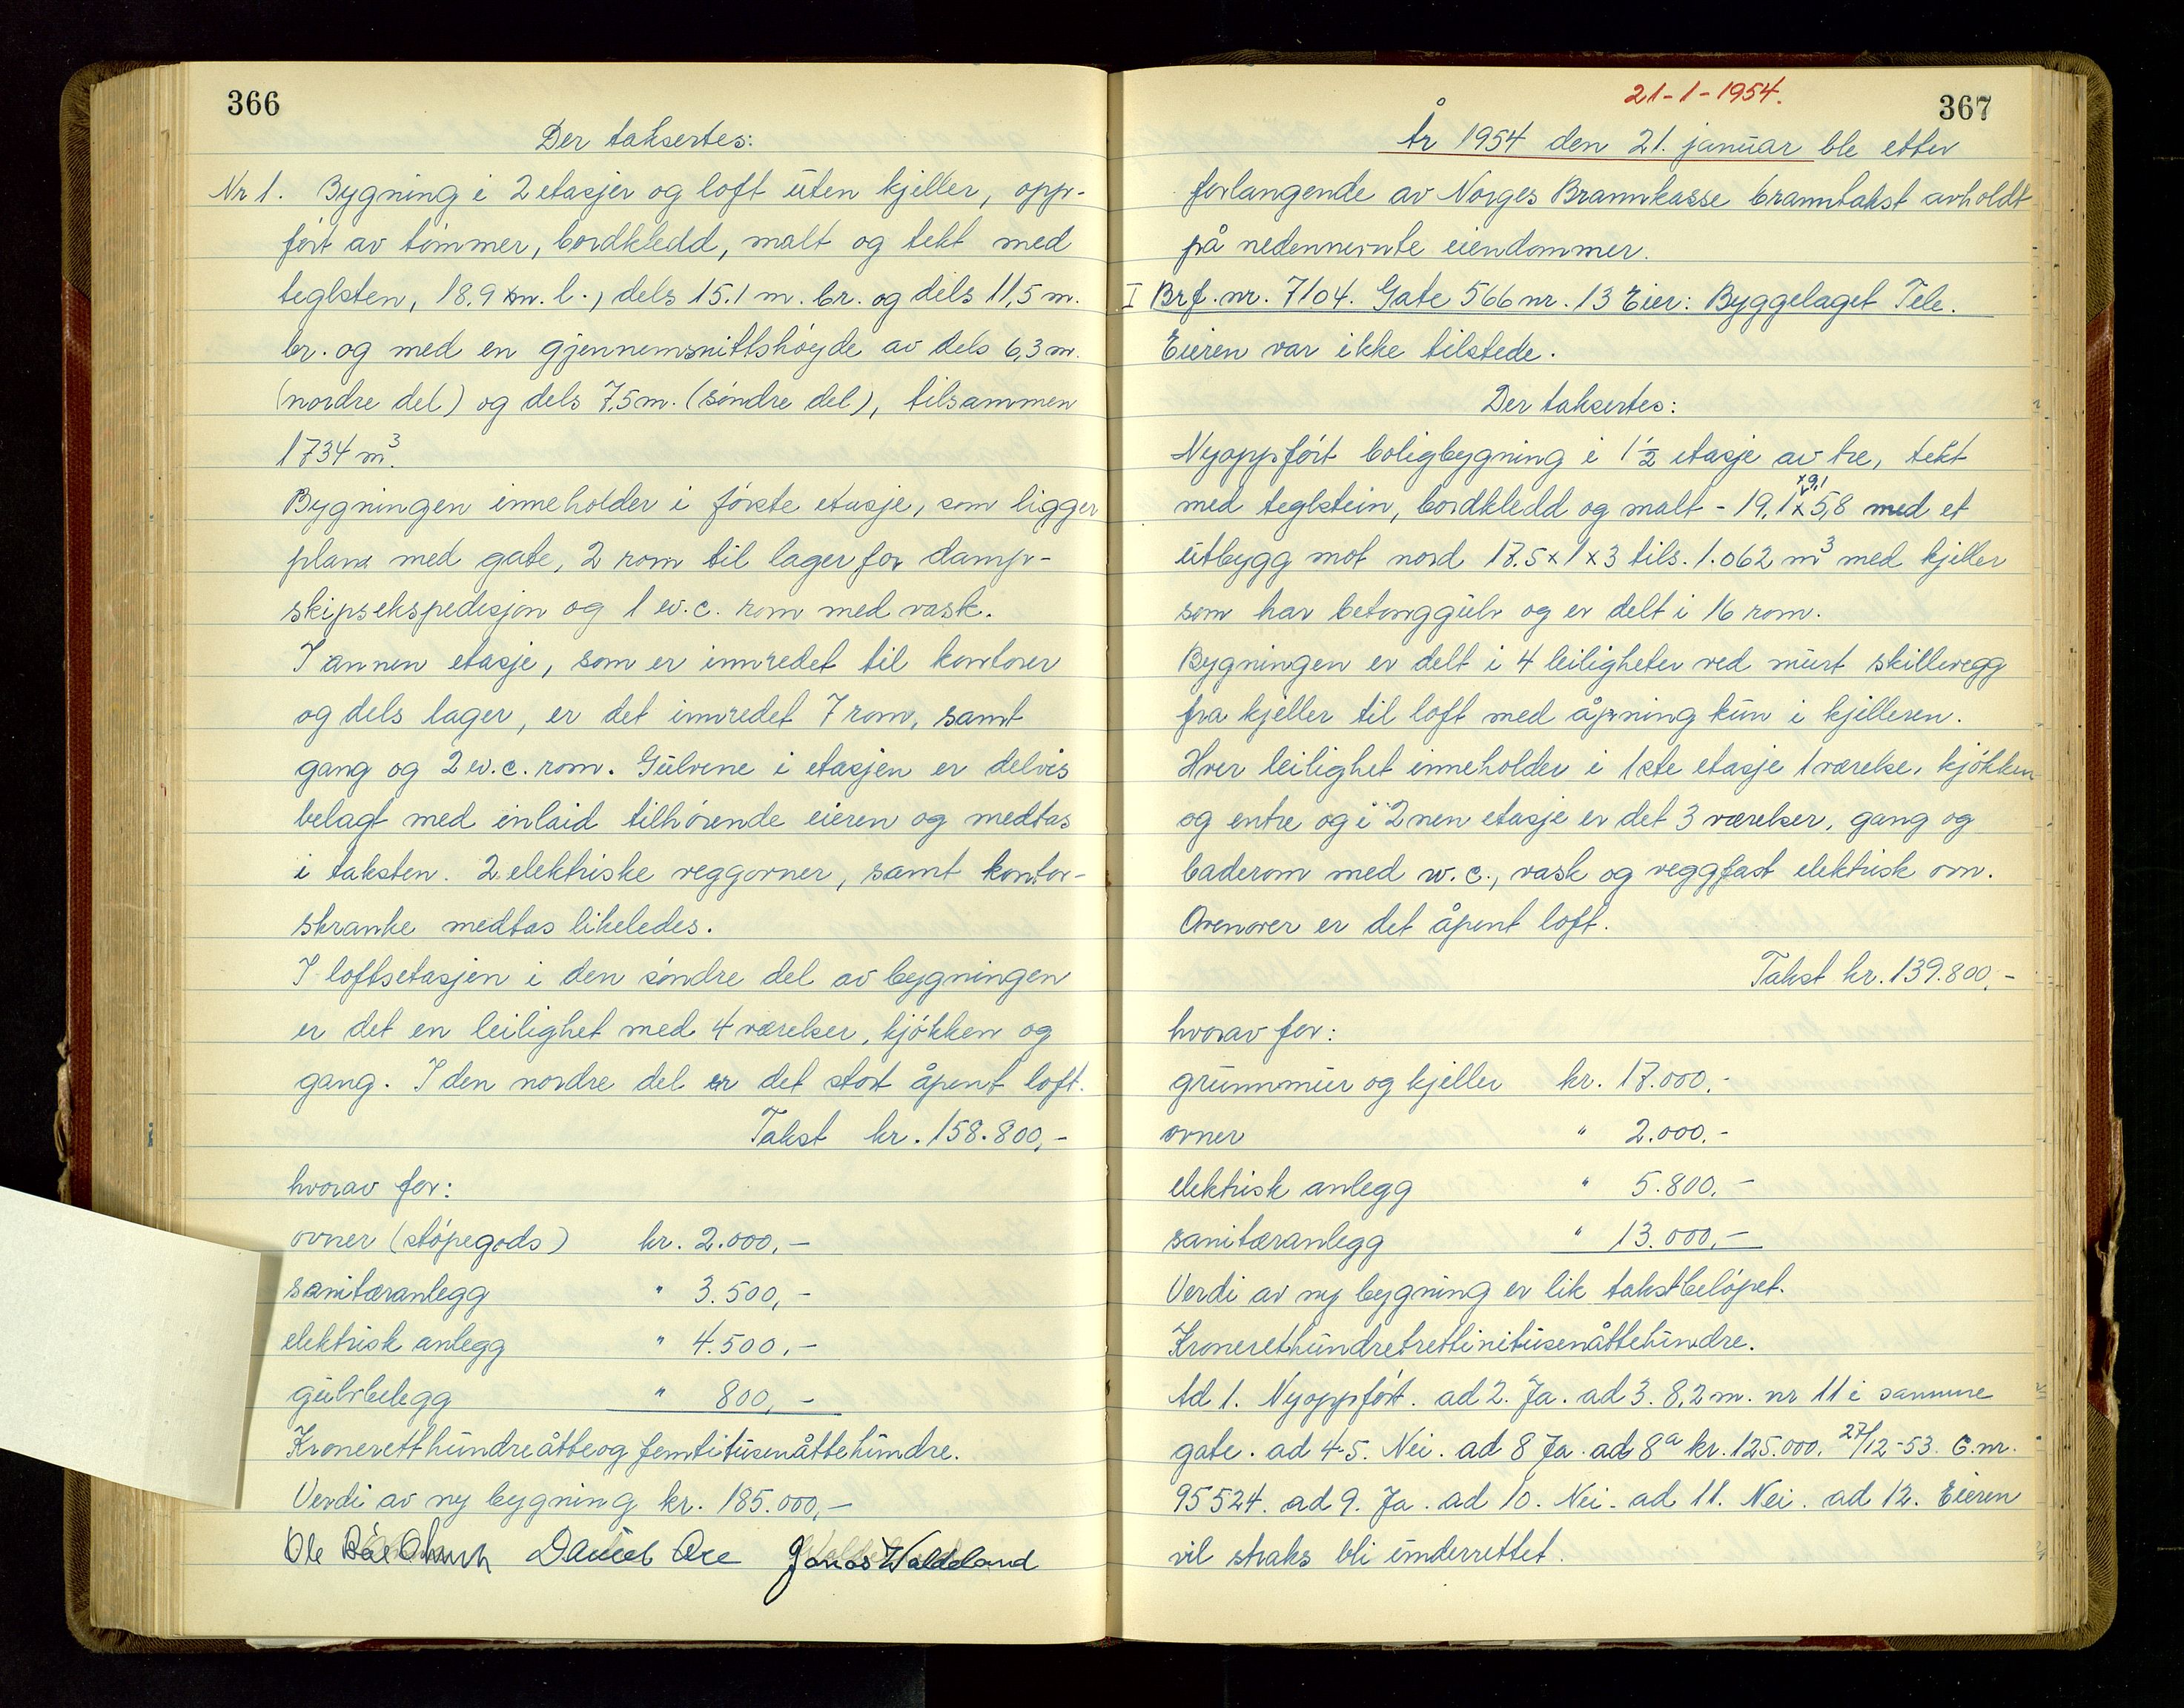 366
Der taksertes:
Nr 1. Bygning i 2 etasjer og loft uten kjeller, opp-
ført av tømmer, bordkledd, malt og tekt med
teglsten, 18.9 m. l., dels 15.1 m. br. og dels 11,5 m.
br. og med en gjennemsnittshøyde av dels 6,3 m.
(nordre del) og dels 7,5 m. (søndre del), tilsammen
1734 m³.
Bygningen inneholder i første etasje, som ligger
plan med gate, 2 rom til lager for damp-
skipsekspedisjon og 1 w.c. rom med vask.
I annen etasje, som er innredet til kontorer
og dels lager, er det innredet 7 rom, samt
gang og 2 w.c. rom. Gulvene i etasjen er delvis
belagt med inlaid tilhørende eieren og medtas
i taksten. 2 elektriske veggovner, samt kontor-
skranke medtas likeledes.
I loftsetasjen i den søndre del av bygningen
er det en leilighet med 4 værelser, kjøkken og
gang. I den nordre del er det stort åpent loft.
Takst kr. 158.800,-
hvorav for:
ovner (støpegods) kr. 2.000,-
sanitæranlegg " 3.500,-
elektrisk anlegg " 4.500,-
gulvbelegg " 800,-
Kroneretthundreåtteogfemtitusenåttehundre.
Verdi av ny bygning kr. 185.000,-
Ole Daniel Jonas Waldeland
21-1-1954.
367
År 1954 den 21. januar ble etter
forlangende av Norges Brannkasse branntakst avholdt
på nedennevnte eiendommer.
I Brf. nr. 7104. Gate 566 nr. 13 Eier: Byggelaget Tele.
Eieren var ikke tilstede.
Der taksertes:
Nyoppført boligbygning i 1½ etasje av tre, tekt
med teglstein, bordkledd og malt - 19,1 x 9,1 x 5,8 med et
utbygg mot nord 17.5 x 1 x 3 tils. 1.062 m³ med kjeller
som har betonggulv og er delt i 16 rom.
Bygningen er delt i 4 leiligheter ved murt skillevegg
fra kjeller til loft med åpning kun i kjelleren.
Hver leilighet inneholder i 1ste etasje 1 værelse, kjøkken
og entre og i 2nen etasje er det 3 værelser, gang og
baderom med w.c., vask og veggfast elektrisk ovn.
Ovenover er det åpent loft.
Takst kr. 139.800,-
hvorav for:
grunnmur og kjeller kr. 17.000,-
ovner " 2.000,-
elektrisk anlegg " 5.800,-
sanitæranlegg " 13.000,-
Verdi av ny bygning er lik takstbeløpet.
Kronerethundretrettinitusenåttehundre.
Ad 1. Nyoppført. ad 2. Ja. ad 3. 8,2 m. nr 11 i samme
gate. ad 4-5. Nei. ad 8 Ja. ad 8a kr. 125.000. 27/12-53. G.nr.
95524. ad 9. Ja. ad 10. Nei. ad 11. Nei. ad 12. Eieren
vil straks bli underrettet.